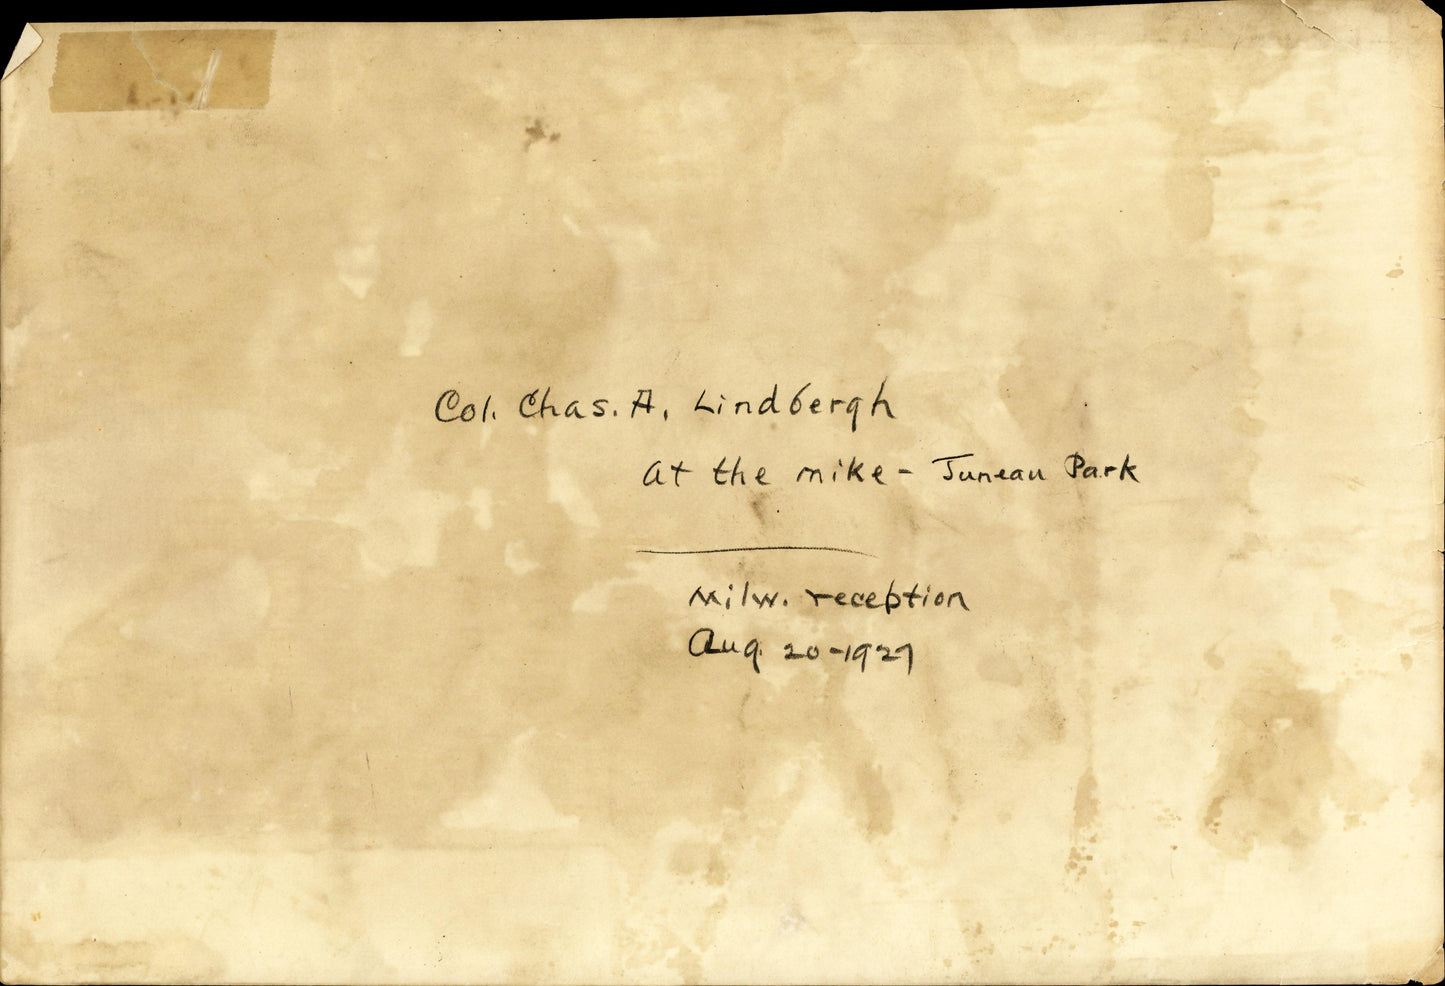 Col. Chas. A. Lindbergh
at the mike - Juneau Park
Milw. reception
Aug. 20-1927